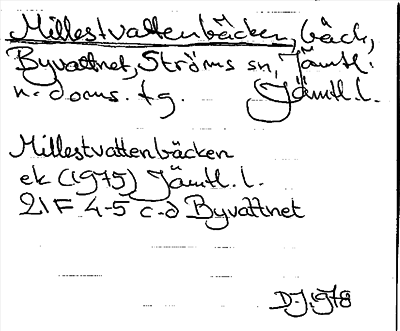 Millestvattenbäcken, bäck,
Byvattnet, Ströms sn, Jämtl.
n. doms. fg. Jämtl. l.
Millestvattenbäcken
ek (1975) Jämtl. l.
21F 4-5 c-d Byvattnet
D-J 1978